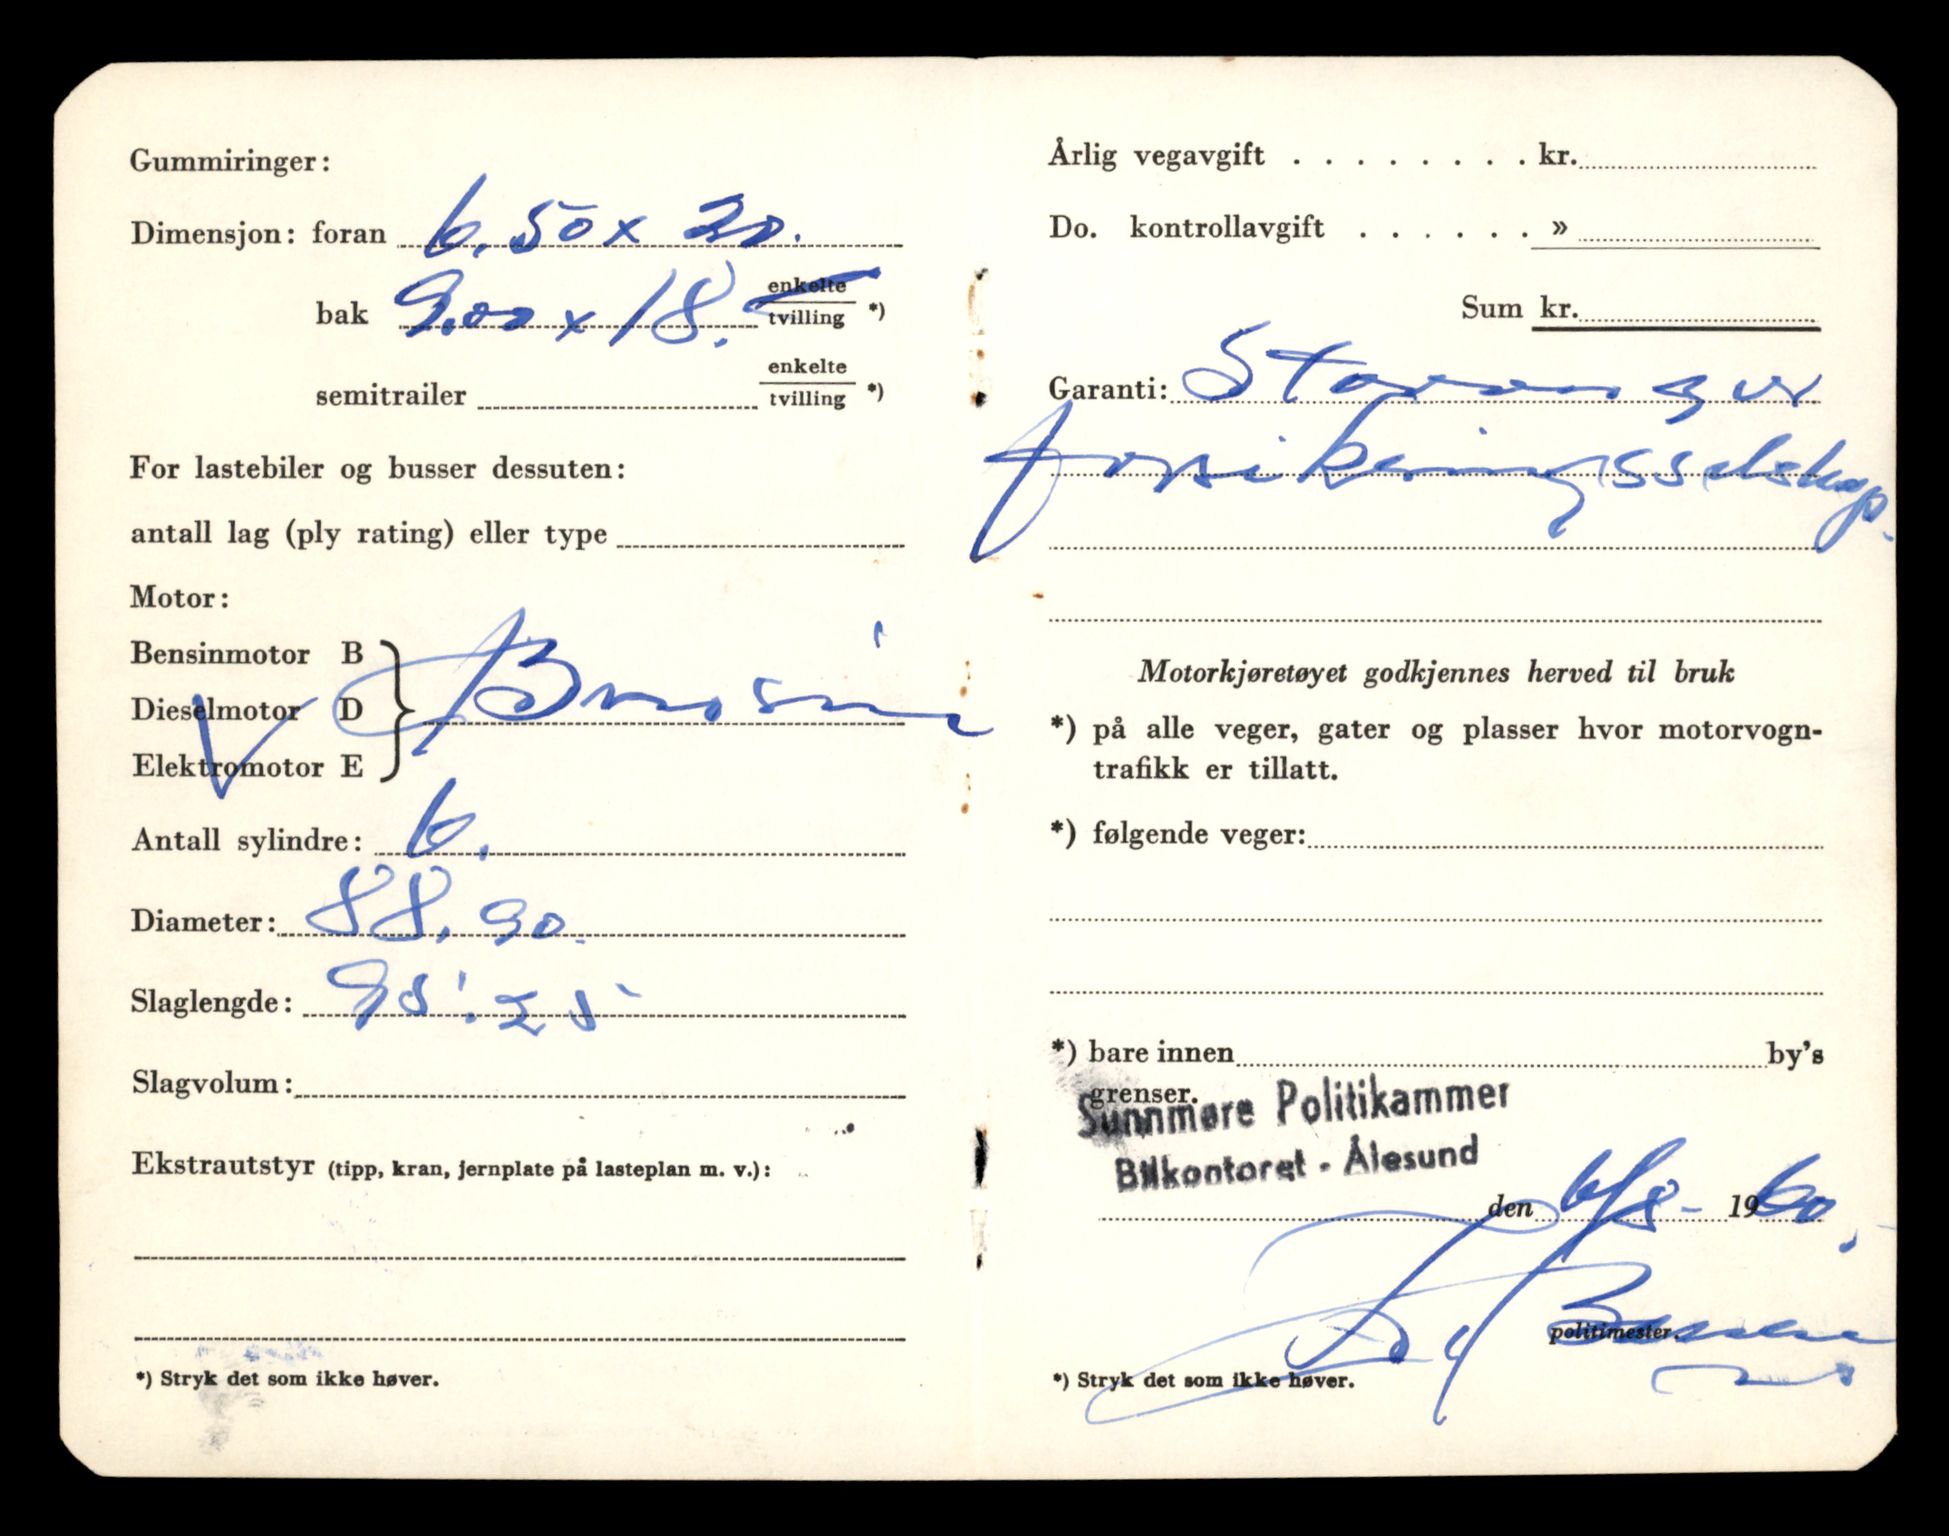 Gummiringer:
Dimensjon: foran 6.50 x 20.
bak 9.00 x 18. enkelte
tvilling *)
semitrailer enkelte
tvilling *)
For lastebiler og busser dessuten:
antall lag (ply rating) eller type
Motor:
Bensinmotor B
Dieselmotor D Bensin
Elektromotor E
Antall sylindre: 6.
Diameter: 88,90.
Slaglengde: 95.25
Slagvolum:
Ekstrautstyr (tipp, kran, jernplate på lasteplan m. v.):
*) Stryk det som ikke høver.
Årlig vegavgift . . . . . . . . kr.
Do. kontrollavgift . . . . . . »
Sum kr.
Garanti: Stavanger
forsikringsselskap.
Motorkjøretøyet godkjennes herved til bruk
*) på alle veger, gater og plasser hvor motorvogn-
trafikk er tillatt.
*) følgende veger:
*) bare innen by's
grenser.
Sunnmøre Politikammer
Bilkontoret - Ålesund
den 6/8- 1960.
politimester.
*) Stryk det som ikke høver.